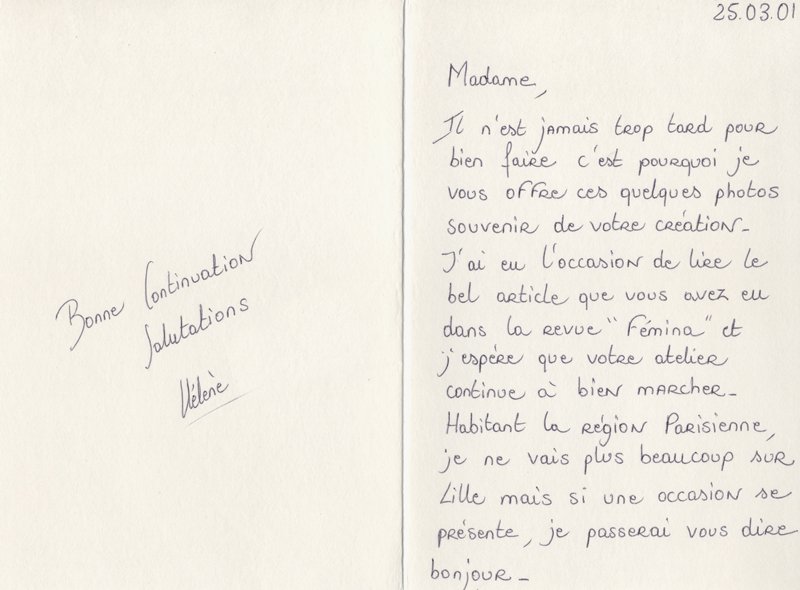 25.03.01
Madame,
Il n'est jamais trop tard pour
bien faire c'est pourquoi je
vous offre ces quelques photos
souvenir de votre création_
J'ai eu l'occasion de lire le
bel article que vous avez eu
dans la revue "Fémina" et
j'espère que votre atelier
continue à bien marcher_
Habitant la région Parisienne,
je ne vais plus beaucoup sur
Lille mais si une occasion se
présente, je passerai vous dire
bonjour_
Bonne Continuation
Salutations
Hélène